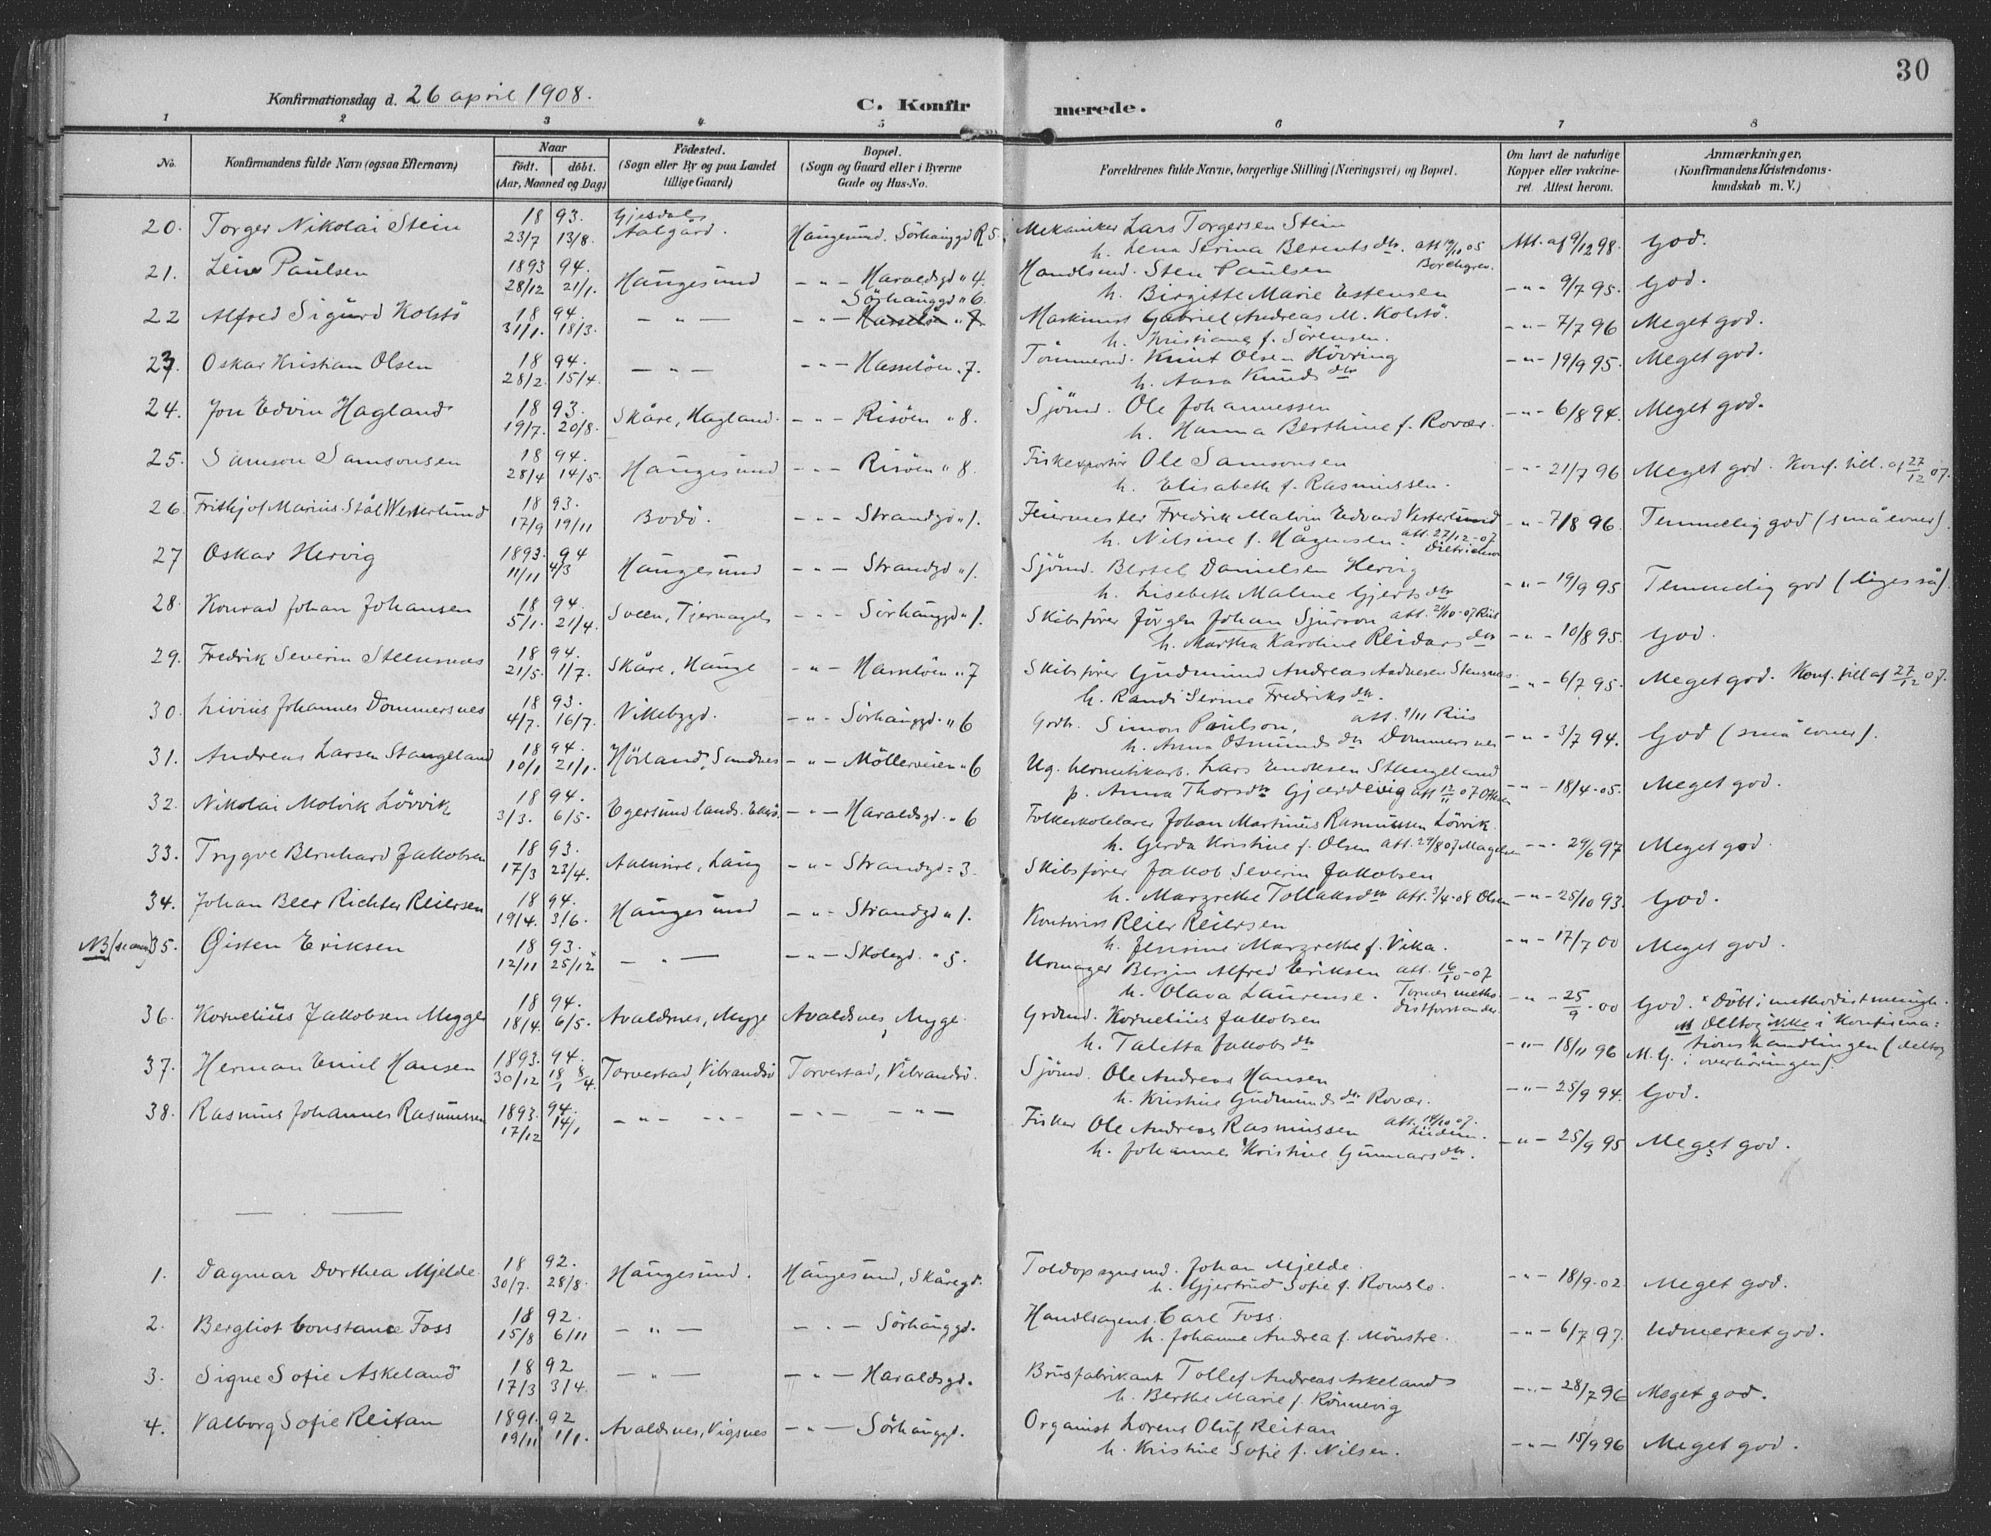 30
Konfirmationsdag d. 26 april 1908.
C. Konfirmerede.
1 2 3 4 5 6 7 8
No. Konfirmandens fulde Navn (ogsaa Efternavn) Naar født. døbt. (Aar, Maaned og Dag) Fødested. (Sogn eller By og paa Landet tillige Gaard) Bopæl. (Sogn og Gaard eller i Byerne Gade og Hus-No. Forældrenes fulde Navne, borgerlige Stilling (Næringsvei) og Bopæl. Om havt de naturlige Kopper eller vakcineret. Attest herom. Anmærkninger. (Konfirmandens Kristendomskundskab m. V.)
20. Torger Nikolai Stein 1893. 23/7 13/8. Gjesdal, Aalgård. Haugesund. Sørhauggd R 5. Mekaniker Lars Torgersen Stein
h. Lena Serina Berentsdtr. att 19/10 05 Att. af 9/12 98. God.
21. Paulsen 1893 94. 28/12 21/1. Haugesund — " — Haraldsgd " 4. Handlsmd. Sten Paulsen
h. Birgitte Marie Estensen — " — 9/7 95. God.
22 Alfred Sigurd Kolstø 18 94. 31/1. 18/3. — " — — " — Sørhauggd " 6. Hasseløen " 7 Maskinist Gabriel Andreas M. Kolstø.
h. Kristiane f. Sørensen. — " — 7/7 96 Meget god.
23. Oskar Kristian Olsen 18 94. 28/2. 15/4. — " — — " — Hasseløen " 7. Tømmermd. Knut Olsen Høvring
h. Aasa Knudsdtr — " — 19/9 95. Meget god.
24. Jon Edvin Hagland 18 93. 19/7. 20/8. Skåre, Hagland. — " — Risøen " 8. Sjømd. Ole Johannessen
h. Hanna Berthine f. Rovær. — " — 6/8 94. Meget god.
25. Samson Samsonsen 18 94. 28/4 14/5. Haugesund — " — Risøen " 8. Fiskexportør Ole Samsonsen
h. Elisabeth f. Rasmussen. — " — 21/7 96 Meget god. Konf. till. af 27/12 07.
26. Frithjof Marius Stål Westerlund 18 93. 17/9 19/11 Bodø. — " — Strandgd " 1. Feiermester Fredrik Malvin Edvard Vesterlund
h. Nilsine f. Hågensen. att. 27/12-07 — " — 7/8 96. Temmelig god (små evner).
27 Oskar Hervig 1893. 94 11/11 4/3 Haugesund — " — Strandgd " 1. Sjømd. Bertel Danielsen Hervig
h. Lisebeth Maline Gjertsdtr — " — 19/9 95 Temmelig god (ligesså).
28. Konrad Johan Johansen 18 94. 5/1. 21/4. Sveen, Tjernagel — " — Sørhauggd " 1. Skibsfører Jørgen Johan Sjurson att. 21/10-07 Riis
h. Martha Karoline Reidarsdtr — " — 10/8 95. God.
29. Fredrik Severin Steensnæs 18 94. 21/5. 1/7. Skåre, Hauge — " — Hasseløen " 7 Skibsfører Gudmund Andreas Andresen Stensnæs
h. Randi Serine Fredriksdtr. — " — 6/7 95. Meget god. Konf. till af 27/12 07.
30. Livius Johannes Dommersnes 18 93. 4/7. 16/7. Vikebygd. — " — Sørhauggd. " 6 Grdbr. Simon Paulson, att. 9/11 Riis
h. Anna Osmundsdtr Dommersnes — " — 3/7 94. God (små evner).
31. Andreas Larsen Stangeland 18 94. 10/1 21/1. Høiland, Sandnes — " — Møllerveien " 6 Ug. hermetikarb. Lars Eriksen Stangeland
p. Anna Thorsdtr Gjerdevig att 12/11 07 — " — 18/4-05. Meget god.
32. Nikolai Molvik Løvvik 18 94. 3/3. 6/5. Egersund lands. — " — Haraldsgd. " 6 Folkeskolelærer Johan Martinus Rasmussen Løvik.
h. Gerda Kristine f. Olsen att. 29/8 07 — " — 29/6 97 Meget god.
33. Trygve Bernhard Jakobsen 18 93. 17/3 23/4. — " — Strandgd " 3. Skibsfører Jakob Severin Jakobsen
h. Margrethe Tollaksdtr att. 3/4-08 Olsen — " — 25/10 93. God.
34. Johan Beer Richter Reiersen 18 94. 19/4. 3/6. Haugesund — " — Strandgd " 1. Kontorist Reier Reiersen
h. Jensine Margrethe f. Vika. — " — 17/7 00 Meget god.
NB 35. Øisten Eriksen 18 93. 12/11 25/12 — " — — " — Skolegd. " 5. Urmager Bersin Alfred Eriksen att. 16/10-07
h. Olava Laurense. — " — 25/9 -00 God. x Døbt i methodistmenigh.
NB Deltog ikke i Konfirmationshandlingen (deltog i overhøringen).
36. Kornelius Jakobsen Mygge 18 94. 18/4. 6/5. Avaldsnes, Mygge Avaldsnes, Mygge. Grdmd. Kornelius Jakobsen
h. Taletta Jakobsdtr — " — 18/11 96 M. G.
37. Herman Emil Hansen 1893. 94. 30/12 18/1 8/4. Torvestad, Vibrandsø Torvestad, Vibrandsø. Sjømd. Ole Andreas Hansen
h. Kristine Gudmundsdtr Rovær. — " — 25/9 94. God.
38. Rasmus Johannes Rasmussen 1893. 94. 17/12 14/1 — " — — " — — " — — " — Fisker Ole Andreas Rasmussen att. 18/10 07.
h. Johanne Kristine Gunnarsdtr. — " — 25/9 95 Meget god.
1. Dagmar Dorthea Mjelde 18 92. 30/7. 28/8. Haugesund. Haugesund, Skåregd. Toldopsynsmd. Johan Mjelde.
h. Gjertrud Sofie f. Romslo. — " — 18/9-02. Meget god.
2. Bergliot Constance Foss 18 92. 15/8 6/11 — " — — " — Sørhauggd. Handelsagent Carl Foss.
h. Johanne Andrea f. Mønstre. — " — 6/7 97. Udmerket god.
3. Signe Sofie Askeland 18 92 17/3 3/4. — " — — " — Haraldsgd. Brusfabrikant Tollef Andreas Askeland
h. Berthe Marie f. Rønnevig — " — 28/7 96 Meget god.
4. Valborg Sofie Reitan 1891. 92 19/11 1/1. Avaldsnes, Vigsnes — " — Sørhauggd. Organist Lorens Oluf Reitan
h. Kristine Sofie f. Nilsen. — " — 15/9 96 Meget god.